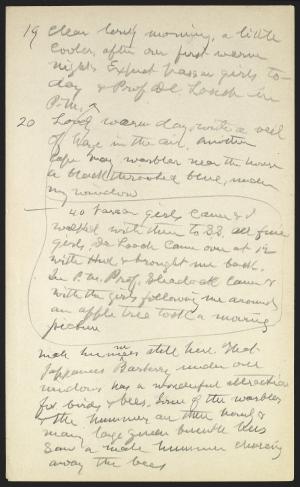 19 Clear lovely morning, a little
cooler, after our first warm
night. Expect Vassar girls to-
day & Prof De Loach in
P.M.
20 Lovely warm day, with a veil
of haze in the air. Another
Cape May warbler near the house
a black throated blue, under
my window
40 Vassar girls came & I
walked with them to S.S. all fine
girls, De Loach came over at 12
with Hud & brought me back.
In P.M. Prof. came &
with the girls following me around
an apple tree took a moving
picture
Male hummer still here. That
Japanese Barberry under our
windows has a wonderful attraction
for birds & bees. Some of the warblers
& the hummer are there hourly &
many large queen bumble bees
Saw a male hummer chasing
away the bees